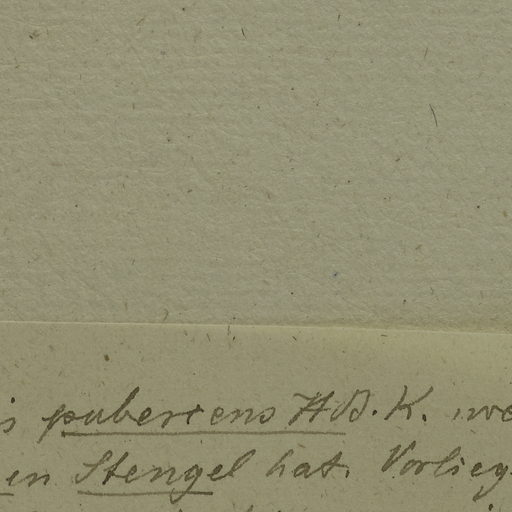 s pubescens H.B.K. we
en Stengel hat. Vorlieg